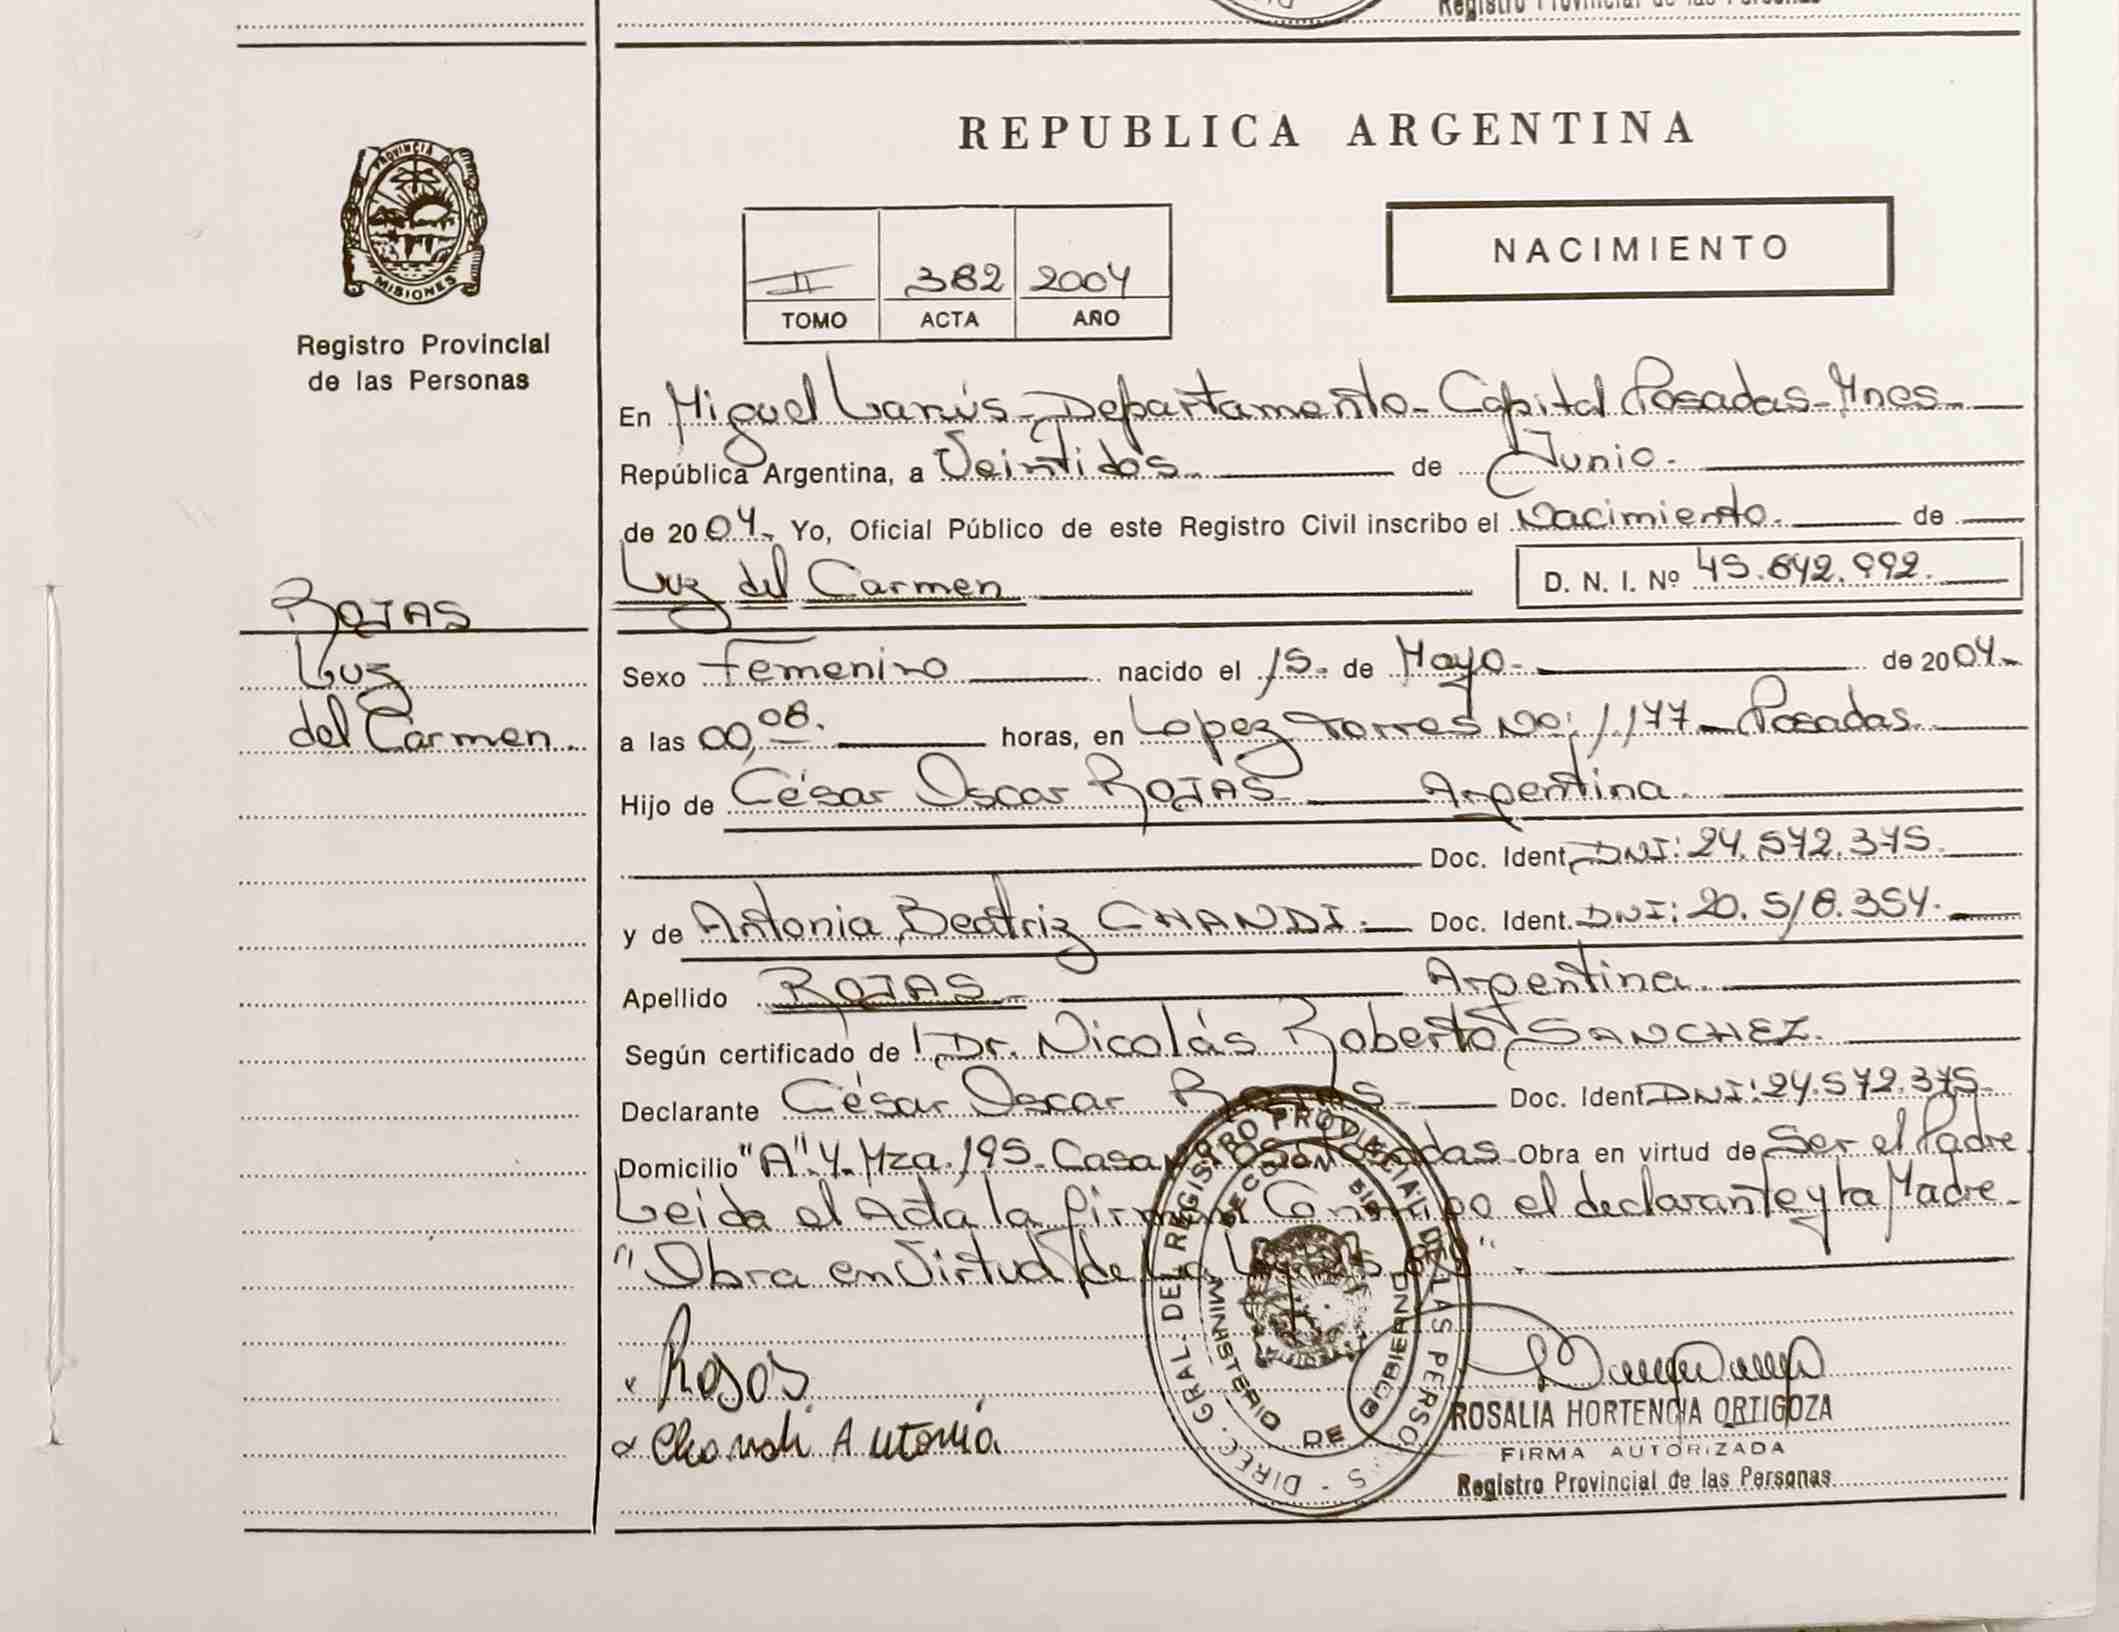 Registro Provincial de las Personas
REPUBLICA ARGENTINA
PROVINCIA DE
MISIONES
Registro Provincial
de las Personas
NACIMIENTO
II 382 2004
TOMO ACTA AÑO
En Miguel Lanús - Departamento - Capital Posadas - Mnes -
República Argentina, a Veintidós de Junio.
de 2004. Yo, Oficial Público de este Registro Civil inscribo el Nacimiento. de
Luz del Carmen D. N. I. Nº 45.642.992.
ROJAS
Luz
del Carmen.
Sexo Femenino nacido el 15. de Mayo. de 2004.
a las 00,08. horas, en Lopez Torres No: 1.177 - Posadas.
Hijo de César Oscar ROJAS Argentina.
Doc. Ident. DNI: 24.572.375.
y de Antonia Beatriz CHANDI. Doc. Ident. DNI: 20.518.354.
Apellido ROJAS Argentina.
Según certificado de Dr. Nicolás Roberto SANCHEZ.
Declarante César Oscar ROJAS Doc. Ident. DNI: 24.572.375.
Domicilio "A" 4. Mza. 195. Casa Obra en virtud de Ser el Padre
Leida el Acta la firman Conmigo el declarante y la Madre.
"Obra en Virtud de La
Rojas
Chandi Antonia
DIREC. GRAL. DEL REGISTRO PROVINCIAL DE LAS PERSONAS
MINISTERIO DE GOBIERNO
ROSALIA HORTENCIA ORTIGOZA
FIRMA AUTORIZADA
Registro Provincial de las Personas